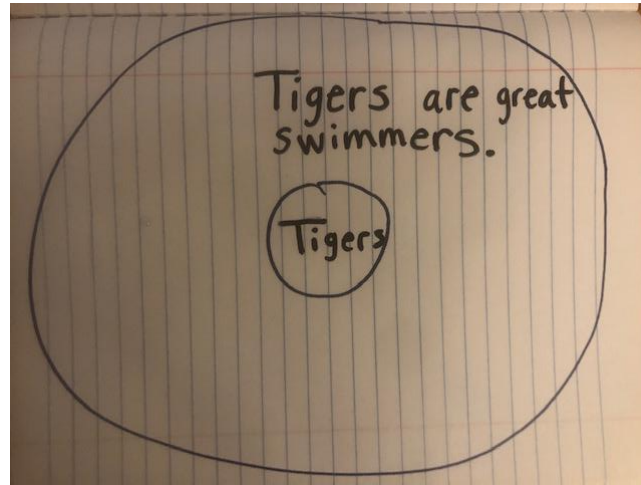 Tigers are great
swimmers.
Tigers